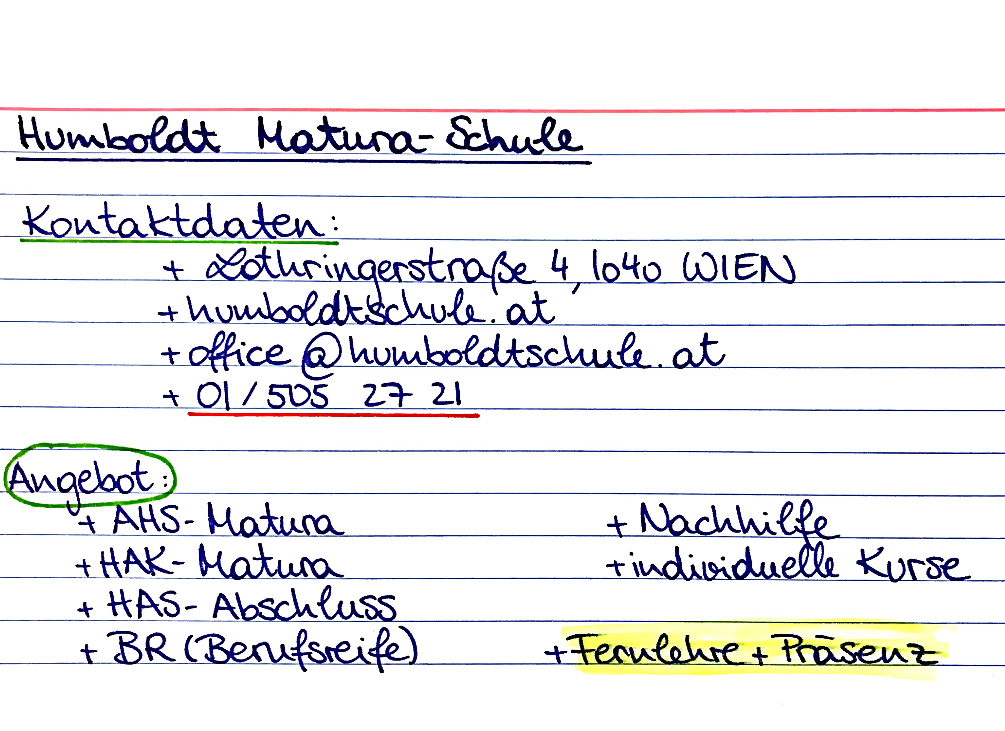 Humboldt Matura-Schule
Kontaktdaten:
+ Lothringerstraße 4, 1040 WIEN
+ humboldtschule.at
+ office@humboldtschule.at
+ 01/505 27 21
Angebot:
+ AHS-Matura + Nachhilfe
+ HAK-Matura + individuelle Kurse
+ HAS-Abschluss
+ BR (Berufsreife) + Fernlehre + Präsenz